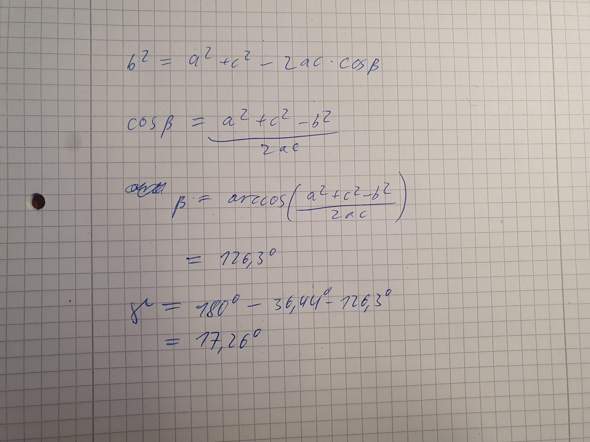 b² = a² + c² - 2ac · cosβ
cosβ = (a² + c² - b²) / 2ac
β = arccos((a² + c² - b²) / 2ac)
= 126,3°
γ = 180° - 36,44° - 126,3°
= 17,26°